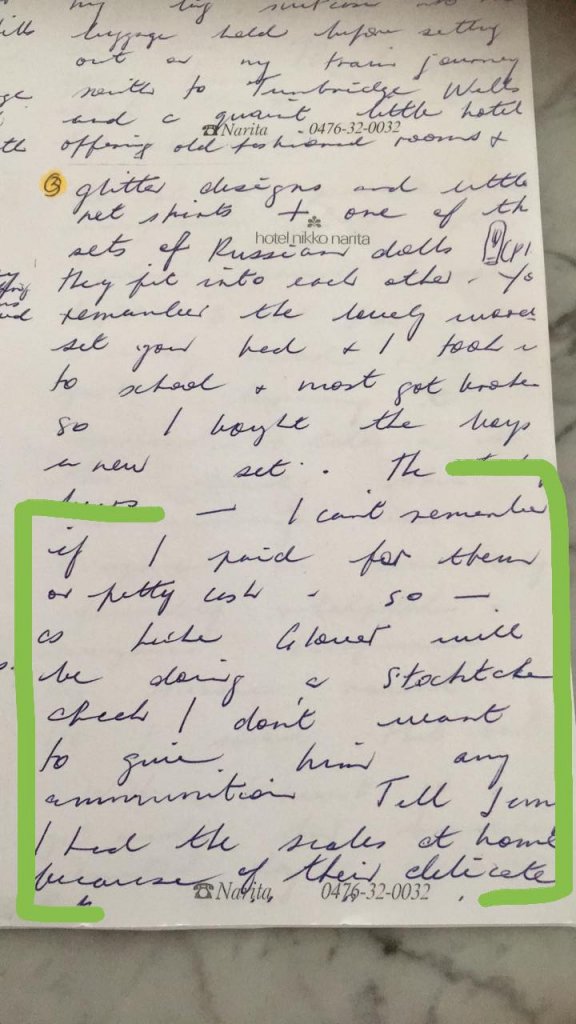 my big suitcase
luggage held before setting
out on my train journey
south to Tunbridge Wells
and a quaint little hotel
☎ Narita - 0476-32-0032
offering old fashioned rooms &
③ glitter designs and little
net skirts + one of th
hotel nikko narita
sets of Russian dolls
they fit into each other. Yo
remember the lovely
set you had & I took
to school & most got broke
so I bought the boys
a new set. The
— I can't remember
if I paid for them
or petty cash - so —
as Luke Glover will
be doing a Stocktake
check I don't want
to give him any
ammunition Tell Jim
I had the scales at home
because of their delicate
☎ Narita 0476-32-0032